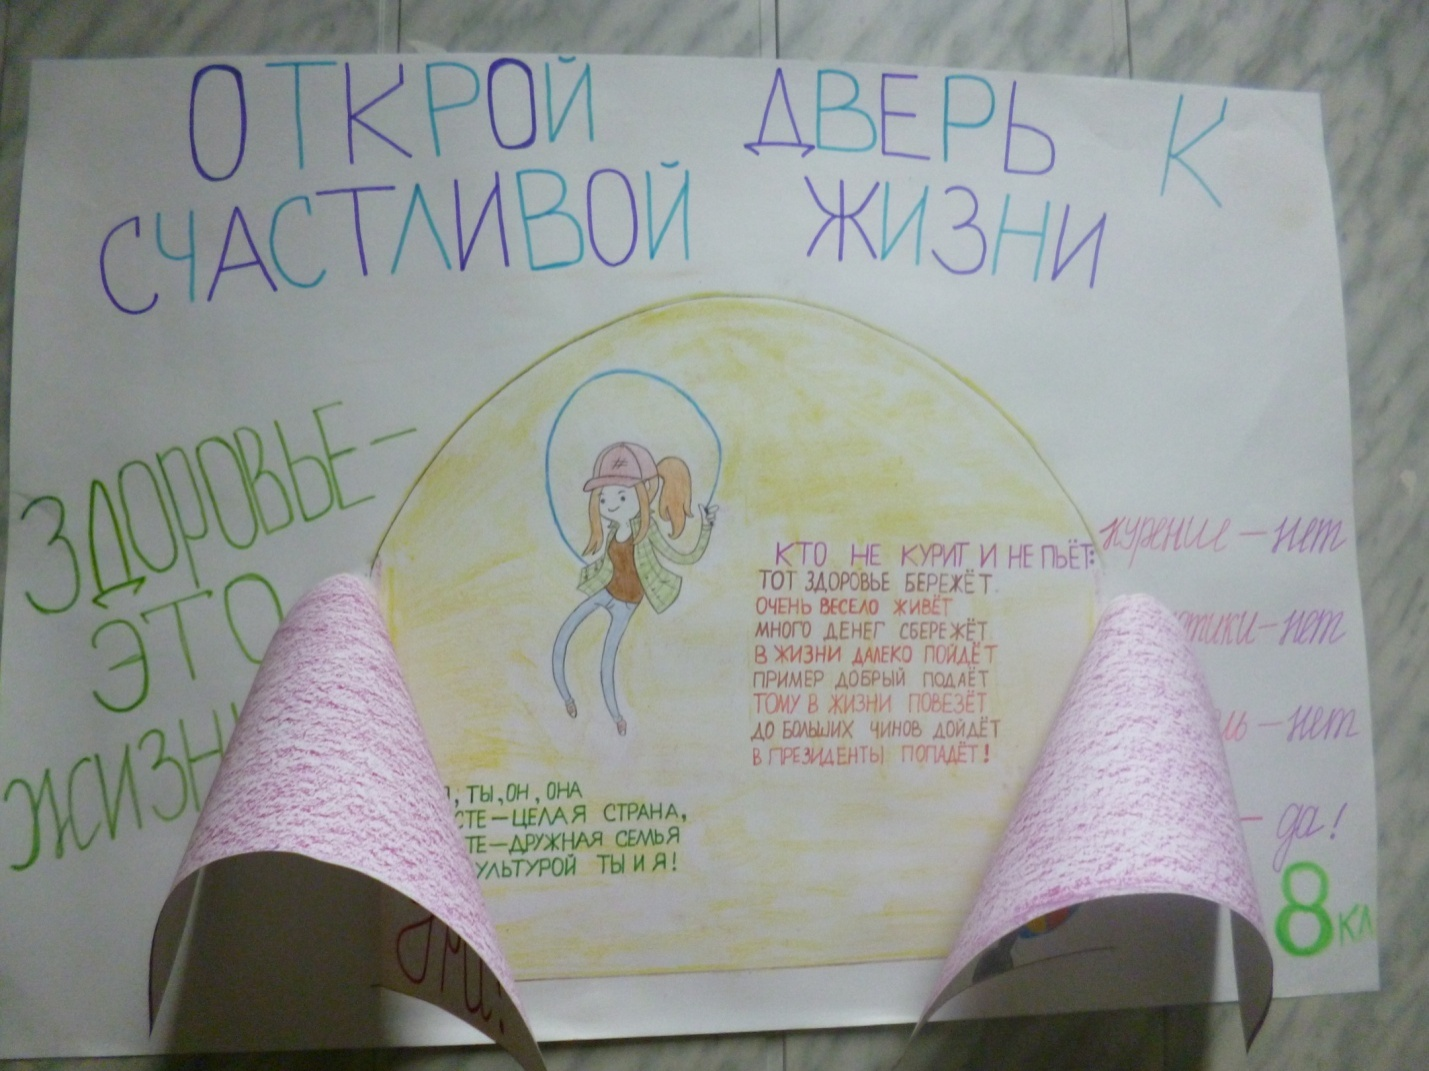 ОТКРОЙ ДВЕРЬ К
СЧАСТЛИВОЙ ЖИЗНИ
ЗДОРОВЬЕ –
ЭТО
КТО НЕ КУРИТ И НЕ ПЬЁТ:
ТОТ ЗДОРОВЬЕ БЕРЕЖЁТ.
ОЧЕНЬ ВЕСЕЛО ЖИВЁТ
МНОГО ДЕНЕГ СБЕРЕЖЁТ
В ЖИЗНИ ДАЛЕКО ПОЙДЁТ
ПРИМЕР ДОБРЫЙ ПОДАЁТ
ТОМУ В ЖИЗНИ ПОВЕЗЁТ
ДО БОЛЬШИХ ЧИНОВ ДОЙДЁТ
В ПРЕЗИДЕНТЫ ПОПАДЁТ!
, ТЫ, ОН, ОНА
– ЦЕЛАЯ СТРАНА,
– ДРУЖНАЯ СЕМЬЯ
ТЫ И Я!
курение – нет
– нет
– нет
– да!
8 кл
#